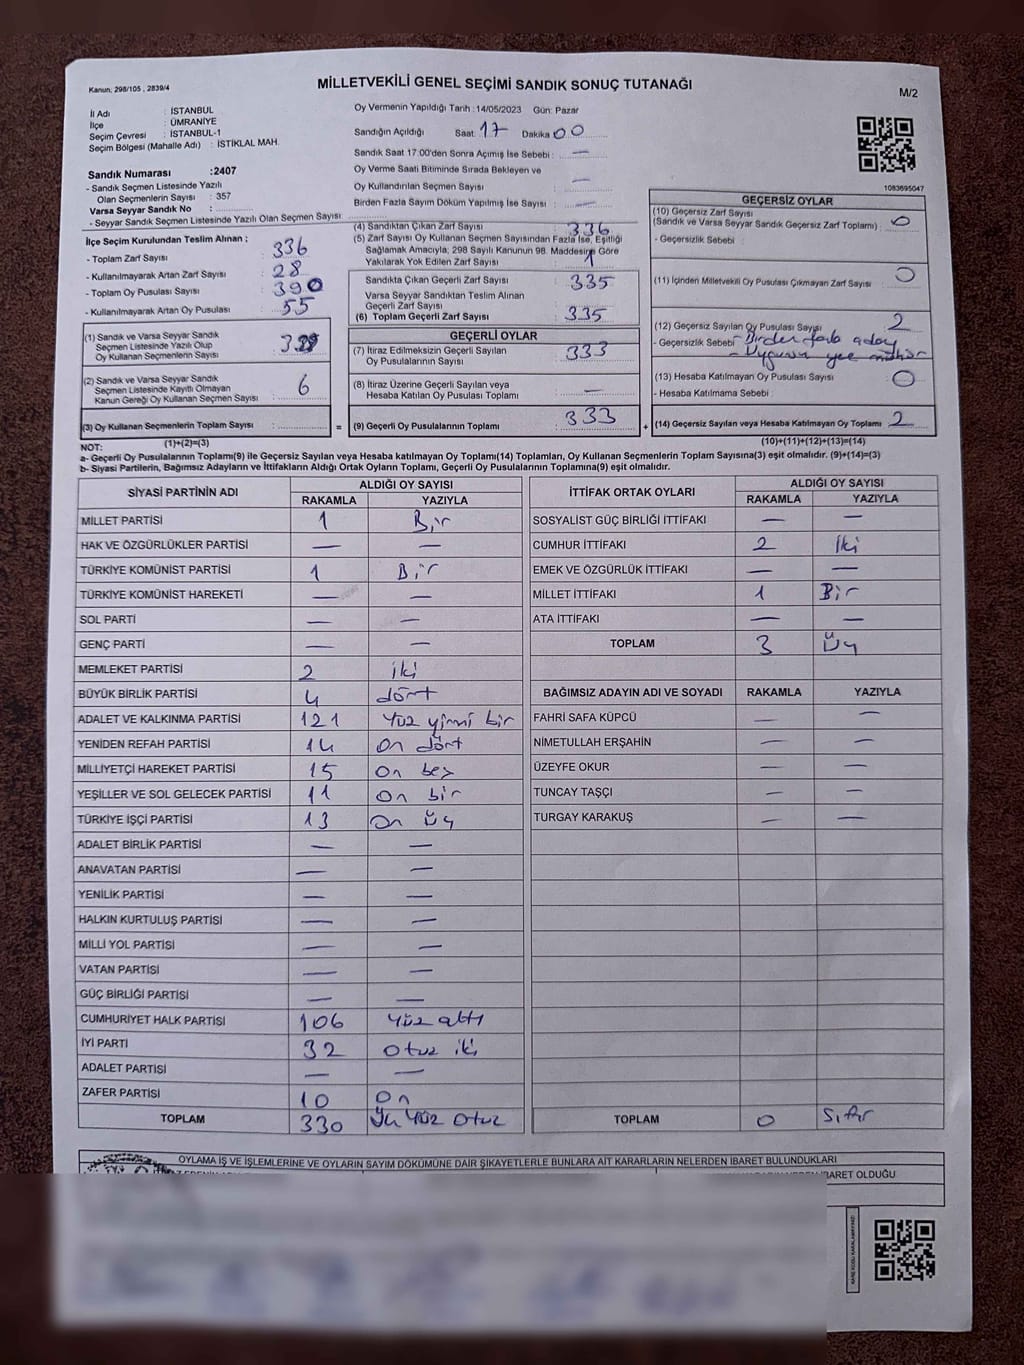 Kanun, 298/105 , 2839/4
MİLLETVEKİLİ GENEL SEÇİMİ SANDIK SONUÇ TUTANAĞI
M/2
İl Adı : İSTANBUL
İlçe : ÜMRANİYE
Seçim Çevresi : İSTANBUL-1
Seçim Bölgesi (Mahalle Adı) : İSTİKLAL MAH.
Sandık Numarası :2407
- Sandık Seçmen Listesinde Yazılı
Olan Seçmenlerin Sayısı : 357
Varsa Seyyar Sandık No :
- Seyyar Sandık Seçmen Listesinde Yazılı Olan Seçmen Sayısı:
Oy Vermenin Yapıldığı Tarih : 14/05/2023 Gün: Pazar
Sandığın Açıldığı Saat: 17 Dakika 00
Sandık Saat 17:00'den Sonra Açılmış İse Sebebi : —
Oy Verme Saati Bitiminde Sırada Bekleyen ve
Oy Kullandırılan Seçmen Sayısı —
Birden Fazla Sayım Döküm Yapılmış İse Sayısı : —
1083695047
İlçe Seçim Kurulundan Teslim Alınan ;
- Toplam Zarf Sayısı : 336
- Kullanılmayarak Artan Zarf Sayısı : 28
- Toplam Oy Pusulası Sayısı : 390
- Kullanılmayarak Artan Oy Pusulası : 55
(1) Sandık ve Varsa Seyyar Sandık
Seçmen Listesinde Yazılı Olup
Oy Kullanan Seçmenlerin Sayısı :
(2) Sandık ve Varsa Seyyar Sandık
Seçmen Listesinde Kayıtlı Olmayan
Kanun Gereği Oy Kullanan Seçmen Sayısı : 6
(3) Oy Kullanan Seçmenlerin Toplam Sayısı :
(1)+(2)=(3)
(4) Sandıktan Çıkan Zarf Sayısı : 336
(5) Zarf Sayısı Oy Kullanan Seçmen Sayısından Fazla İse, Eşitliği
Sağlamak Amacıyla; 298 Sayılı Kanunun 98. Maddesine Göre
Yakılarak Yok Edilen Zarf Sayısı : 1
Sandıkta Çıkan Geçerli Zarf Sayısı : 335
Varsa Seyyar Sandıktan Teslim Alınan
Geçerli Zarf Sayısı
(6) Toplam Geçerli Zarf Sayısı : 335
GEÇERLİ OYLAR
(7) İtiraz Edilmeksizin Geçerli Sayılan
Oy Pusulalarının Sayısı : 333
(8) İtiraz Üzerine Geçerli Sayılan veya
Hesaba Katılan Oy Pusulası Toplamı : —
= (9) Geçerli Oy Pusulalarının Toplamı : 333
GEÇERSİZ OYLAR
(10) Geçersiz Zarf Sayısı
(Sandık ve Varsa Seyyar Sandık Geçersiz Zarf Toplamı) : 0
- Geçersizlik Sebebi :
(11) İçinden Milletvekili Oy Pusulası Çıkmayan Zarf Sayısı : 0
(12) Geçersiz Sayılan Oy Pusulası Sayısı : 2
- Geçersizlik Sebebi - Birden fazla aday
(13) Hesaba Katılmayan Oy Pusulası Sayısı : 0
- Hesaba Katılmama Sebebi :
+ (14) Geçersiz Sayılan veya Hesaba Katılmayan Oy Toplamı : 2
(10)+(11)+(12)+(13)=(14)
NOT:
a- Geçerli Oy Pusulalarının Toplamı(9) ile Geçersiz Sayılan veya Hesaba katılmayan Oy Toplamı(14) Toplamları, Oy Kullanan Seçmenlerin Toplam Sayısına(3) eşit olmalıdır. (9)+(14)=(3)
b- Siyasi Partilerin, Bağımsız Adayların ve İttifakların Aldığı Ortak Oyların Toplamı, Geçerli Oy Pusulalarının Toplamına(9) eşit olmalıdır.
SİYASİ PARTİNİN ADI
ALDIĞI OY SAYISI
RAKAMLA YAZIYLA
MİLLET PARTİSİ 1 Bir
HAK VE ÖZGÜRLÜKLER PARTİSİ — —
TÜRKİYE KOMÜNİST PARTİSİ 1 Bir
TÜRKİYE KOMÜNİST HAREKETİ — —
SOL PARTİ — —
GENÇ PARTİ — —
MEMLEKET PARTİSİ 2 iki
BÜYÜK BİRLİK PARTİSİ 4 dört
ADALET VE KALKINMA PARTİSİ 121 Yüz yirmi bir
YENİDEN REFAH PARTİSİ 14 On dört
MİLLİYETÇİ HAREKET PARTİSİ 15 On beş
YEŞİLLER VE SOL GELECEK PARTİSİ 11 On bir
TÜRKİYE İŞÇİ PARTİSİ 13 On Üç
ADALET BİRLİK PARTİSİ — —
ANAVATAN PARTİSİ — —
YENİLİK PARTİSİ — —
HALKIN KURTULUŞ PARTİSİ — —
MİLLİ YOL PARTİSİ — —
VATAN PARTİSİ — —
GÜÇ BİRLİĞİ PARTİSİ — —
CUMHURİYET HALK PARTİSİ 106 Yüz altı
İYİ PARTİ 32 Otuz iki
ADALET PARTİSİ — —
ZAFER PARTİSİ 10 On
TOPLAM 330 Üç Yüz Otuz
İTTİFAK ORTAK OYLARI
ALDIĞI OY SAYISI
RAKAMLA YAZIYLA
SOSYALİST GÜÇ BİRLİĞİ İTTİFAKI — —
CUMHUR İTTİFAKI 2 İki
EMEK VE ÖZGÜRLÜK İTTİFAKI — —
MİLLET İTTİFAKI 1 Bir
ATA İTTİFAKI — —
TOPLAM 3 Üç
BAĞIMSIZ ADAYIN ADI VE SOYADI RAKAMLA YAZIYLA
FAHRİ SAFA KÜPCÜ — —
NİMETULLAH ERŞAHİN — —
ÜZEYFE OKUR — —
TUNCAY TAŞÇI — —
TURGAY KARAKUŞ — —
TOPLAM 0 Sıfır
OYLAMA İŞ VE İŞLEMLERİNE VE OYLARIN SAYIM DÖKÜMÜNE DAİR ŞİKAYETLERLE BUNLARA AİT KARARLARIN NELERDEN İBARET BULUNDUKLARI
İBARET OLDUĞU